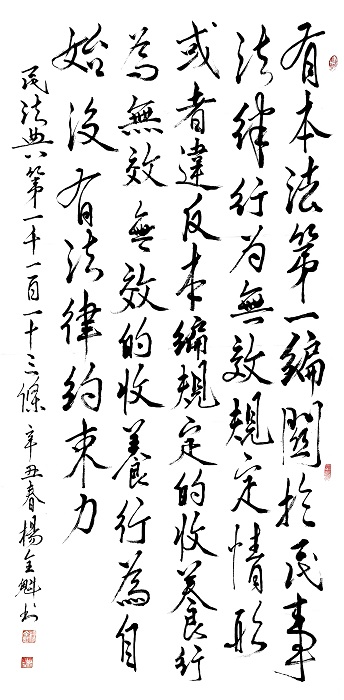 有本法第一編關於民事
法律行为無效規定情形
或者違反本編規定的收養行
為無效無效的收養行為自
始没有法律約束力
民法典第一千一百一十三條 辛丑春楊金魁书